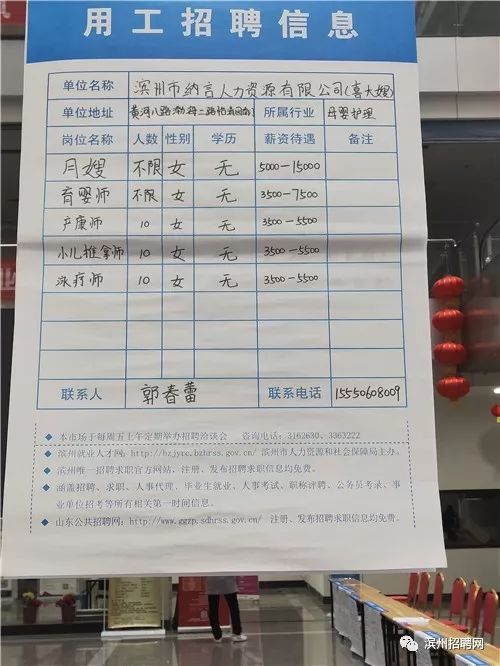 用工招聘信息
单位名称 滨州市纳言人力资源有限公司(喜大嫂)
单位地址 黄河八路渤海二路 所属行业 母婴护理
岗位名称 人数 性别 学历 薪资待遇 备注
月嫂 不限 女 无 5000-15000
育婴师 不限 女 无 3500-7500
产康师 10 女 无 3500-5500
小儿推拿师 10 女 无 3500-5500
泳疗师 10 女 无 3500-5500
联系人 郭春蕾 联系电话 15550608009
◆ 本市场于每周五上午定期举办招聘洽谈会 咨询电话：3162630、3363222
◆ 滨州就业人才网：http://bzjycc.bzhrss.gov.cn/ 滨州市人力资源和社会保障局主办。
◆ 滨州唯一招聘求职官方网站，注册、发布招聘求职信息均免费。
◆ 涵盖招聘、求职、人事代理、毕业生就业、人事考试、职称评聘、公务员考录、事
业单位招考等所有相关第一时间信息。
◆ 山东公共招聘网：http://www.ggzp.sdhrss.gov.cn/ 注册、发布招聘求职信息均免费。
滨州招聘网